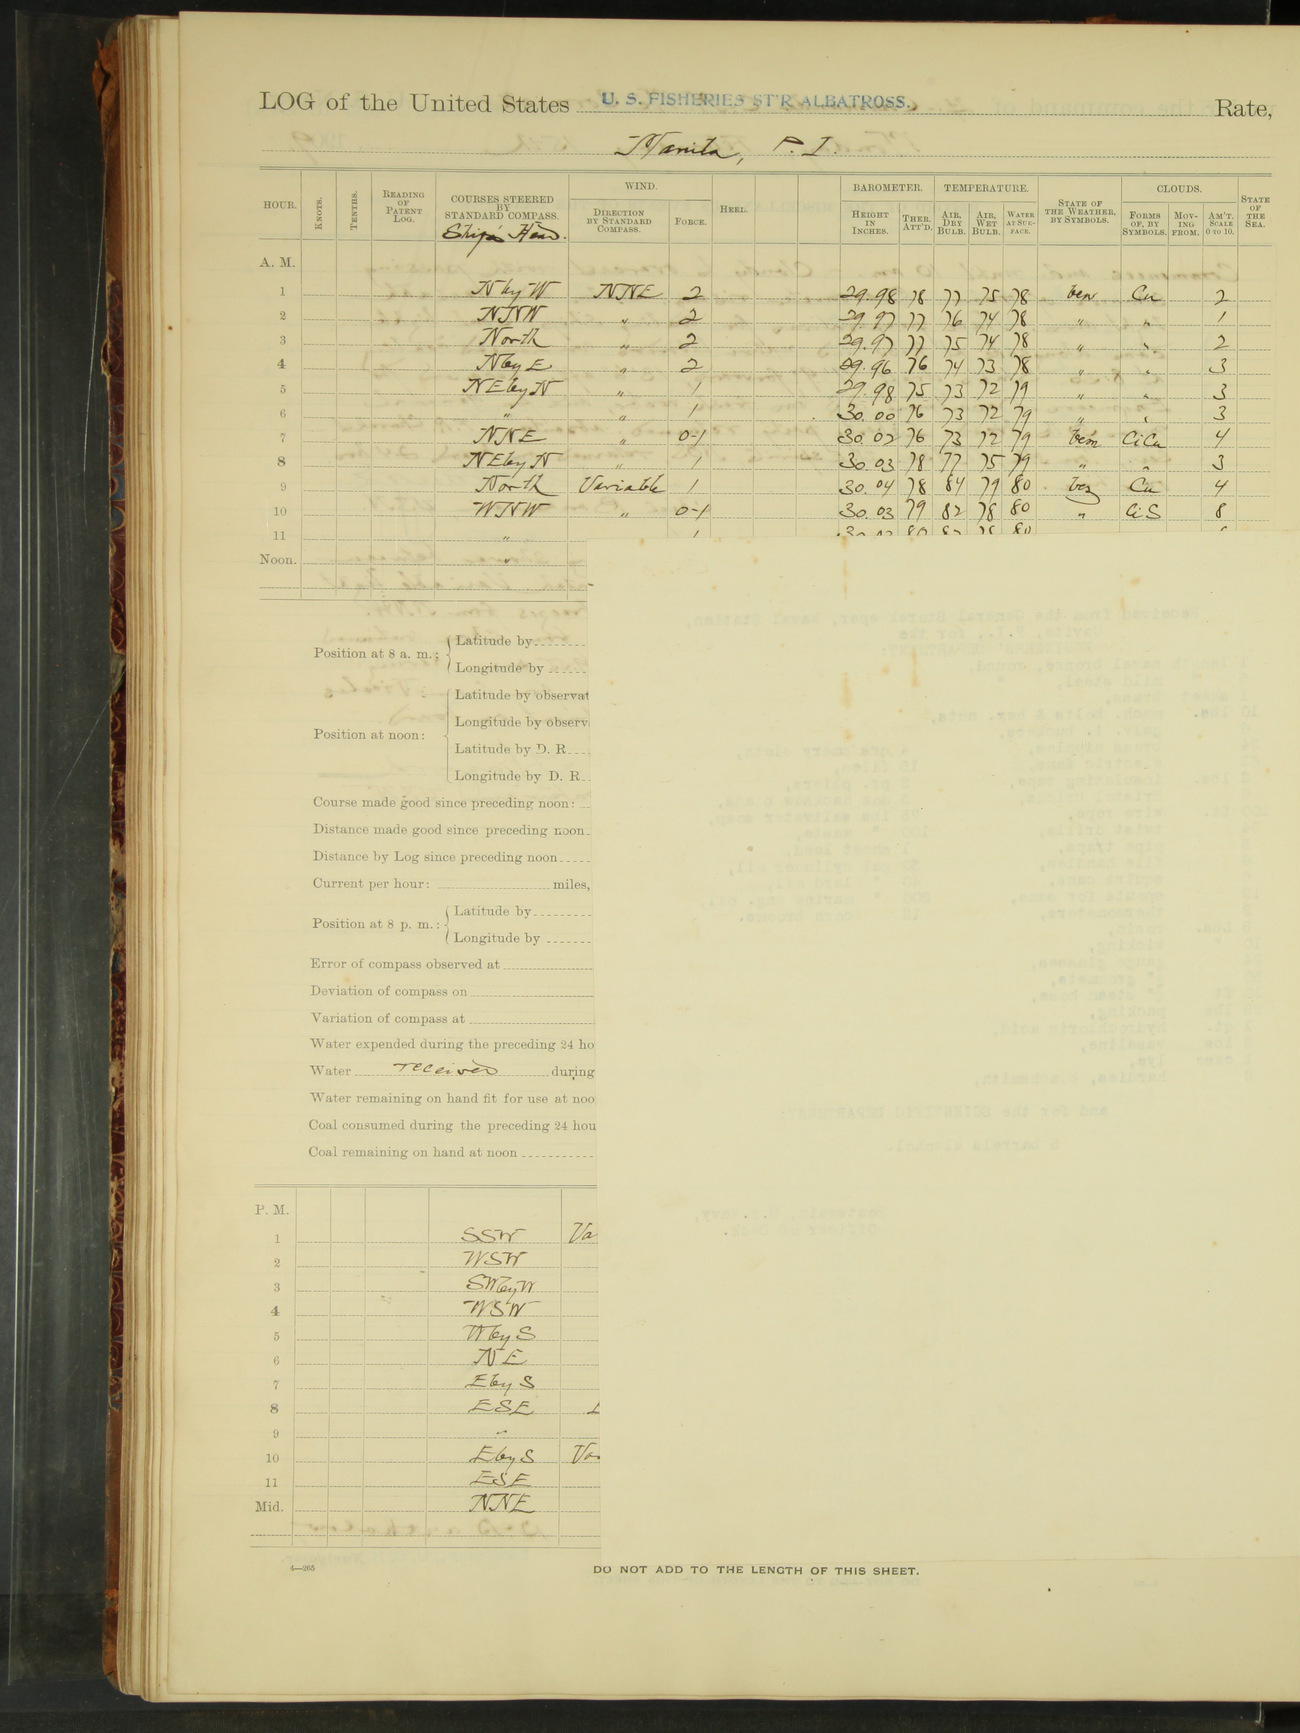 LOG of the United States U. S. FISHERIES ST'R ALBATROSS. Rate,
Manila, P. I.
HOUR. KNOTS. TENTHS. READING OF PATENT LOG. COURSES STEERED BY STANDARD COMPASS. Ship's Head. WIND. DIRECTION BY STANDARD COMPASS. FORCE. HEEL. BAROMETER. HEIGHT IN INCHES. THER. ATT'D. TEMPERATURE. AIR, DRY BULB. AIR, WET BULB. WATER AT SURFACE. STATE OF THE WEATHER, BY SYMBOLS. CLOUDS. FORMS OF, BY SYMBOLS. MOVING FROM. AM'T. SCALE 0 TO 10. STATE OF THE SEA.
A. M.
1 N by W NNE 2 29.98 78 77 75 78 Cu 2
2 NNW " 2 29.97 77 76 74 78 " " 1
3 North " 2 29.97 77 75 74 78 " " 2
4 N by E " 2 29.96 76 74 73 78 " " 3
5 NE by N " 1 29.98 75 73 72 79 " " 3
6 " " 1 30.00 76 73 72 79 " " 3
7 NNE " 0-1 30.02 76 73 72 79 bcm CiCu 4
8 NE by N " 1 30.03 78 77 75 79 " " 3
9 North Variable 1 30.04 78 84 79 80 bcz Cu 4
10 WNW " 0-1 30.03 79 82 78 80 " Ci S 8
11 "
Noon. "
Position at 8 a. m.: Latitude by
Longitude by
Position at noon: Latitude by observat
Longitude by observ
Latitude by D. R.
Longitude by D. R.
Course made good since preceding noon:
Distance made good since preceding noon
Distance by Log since preceding noon
Current per hour: miles,
Position at 8 p. m.: Latitude by
Longitude by
Error of compass observed at
Deviation of compass on
Variation of compass at
Water expended during the preceding 24 ho
Water received during
Water remaining on hand fit for use at noo
Coal consumed during the preceding 24 hou
Coal remaining on hand at noon
P. M.
1 SSW Va
2 WSW
3 SW by W
4 WSW
5 W by S
6 NE
7 E by S
8 ESE
9 "
10 E by S Va
11 ESE
Mid. NNE
4—265
DO NOT ADD TO THE LENGTH OF THIS SHEET.